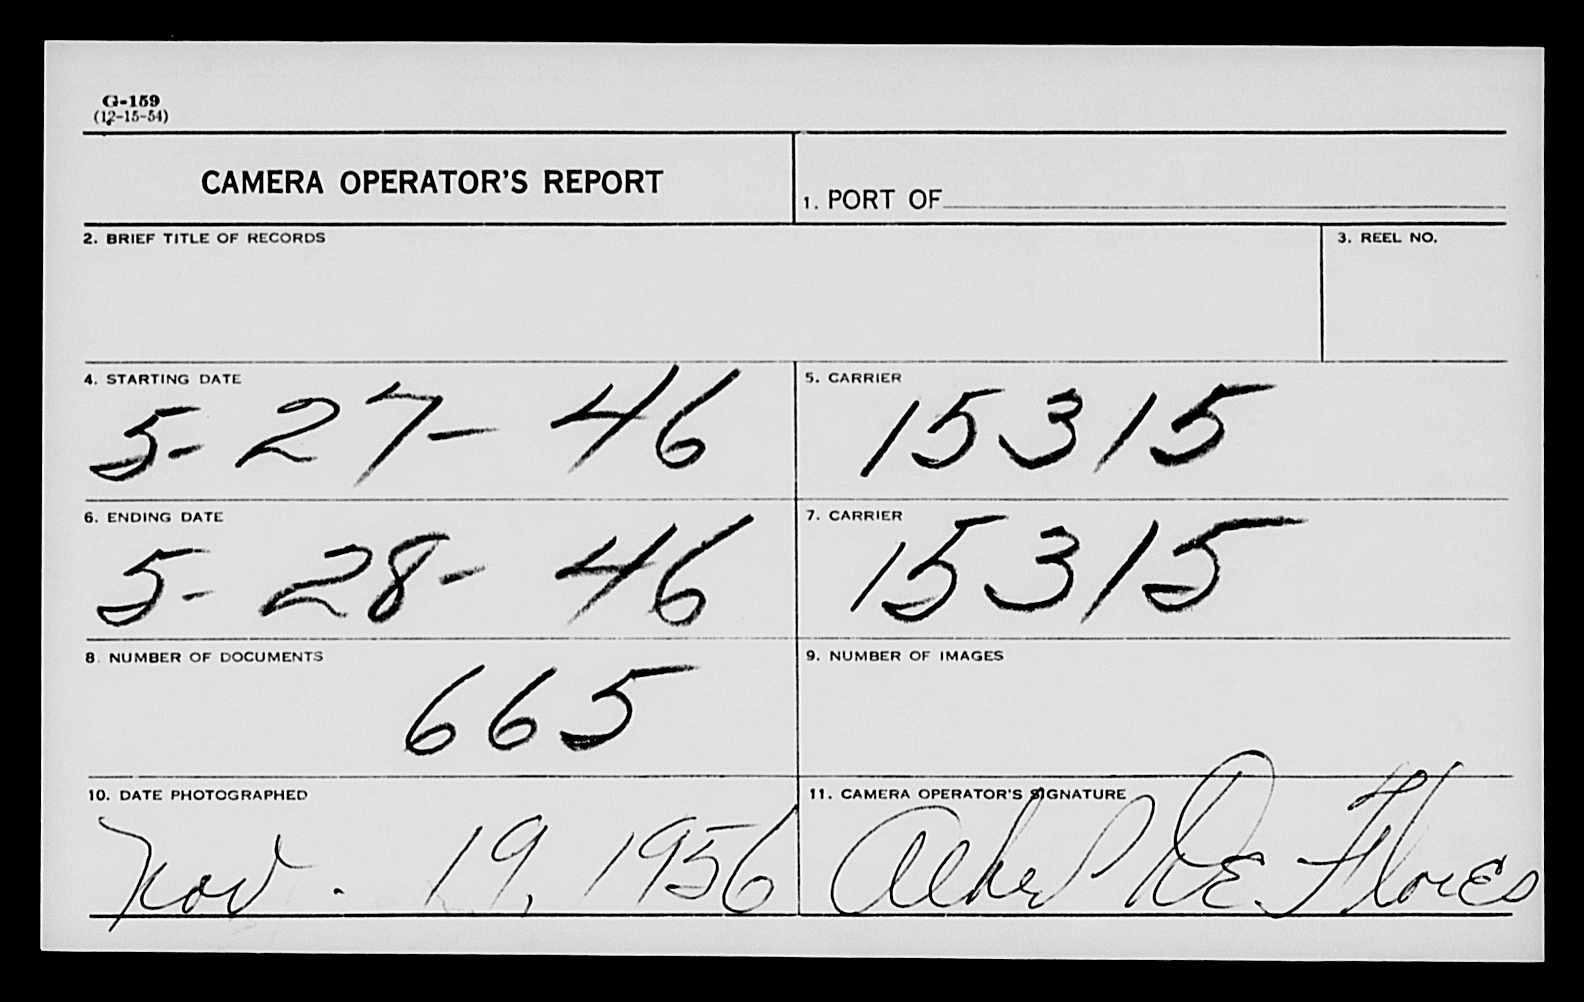 G-159
(12-15-54)
CAMERA OPERATOR'S REPORT
1. PORT OF
2. BRIEF TITLE OF RECORDS
3. REEL NO.
4. STARTING DATE
5-27-46
5. CARRIER
15315
6. ENDING DATE
5-28-46
7. CARRIER
15315
8. NUMBER OF DOCUMENTS
665
9. NUMBER OF IMAGES
10. DATE PHOTOGRAPHED
Nov. 19, 1956
11. CAMERA OPERATOR'S SIGNATURE
De Flores